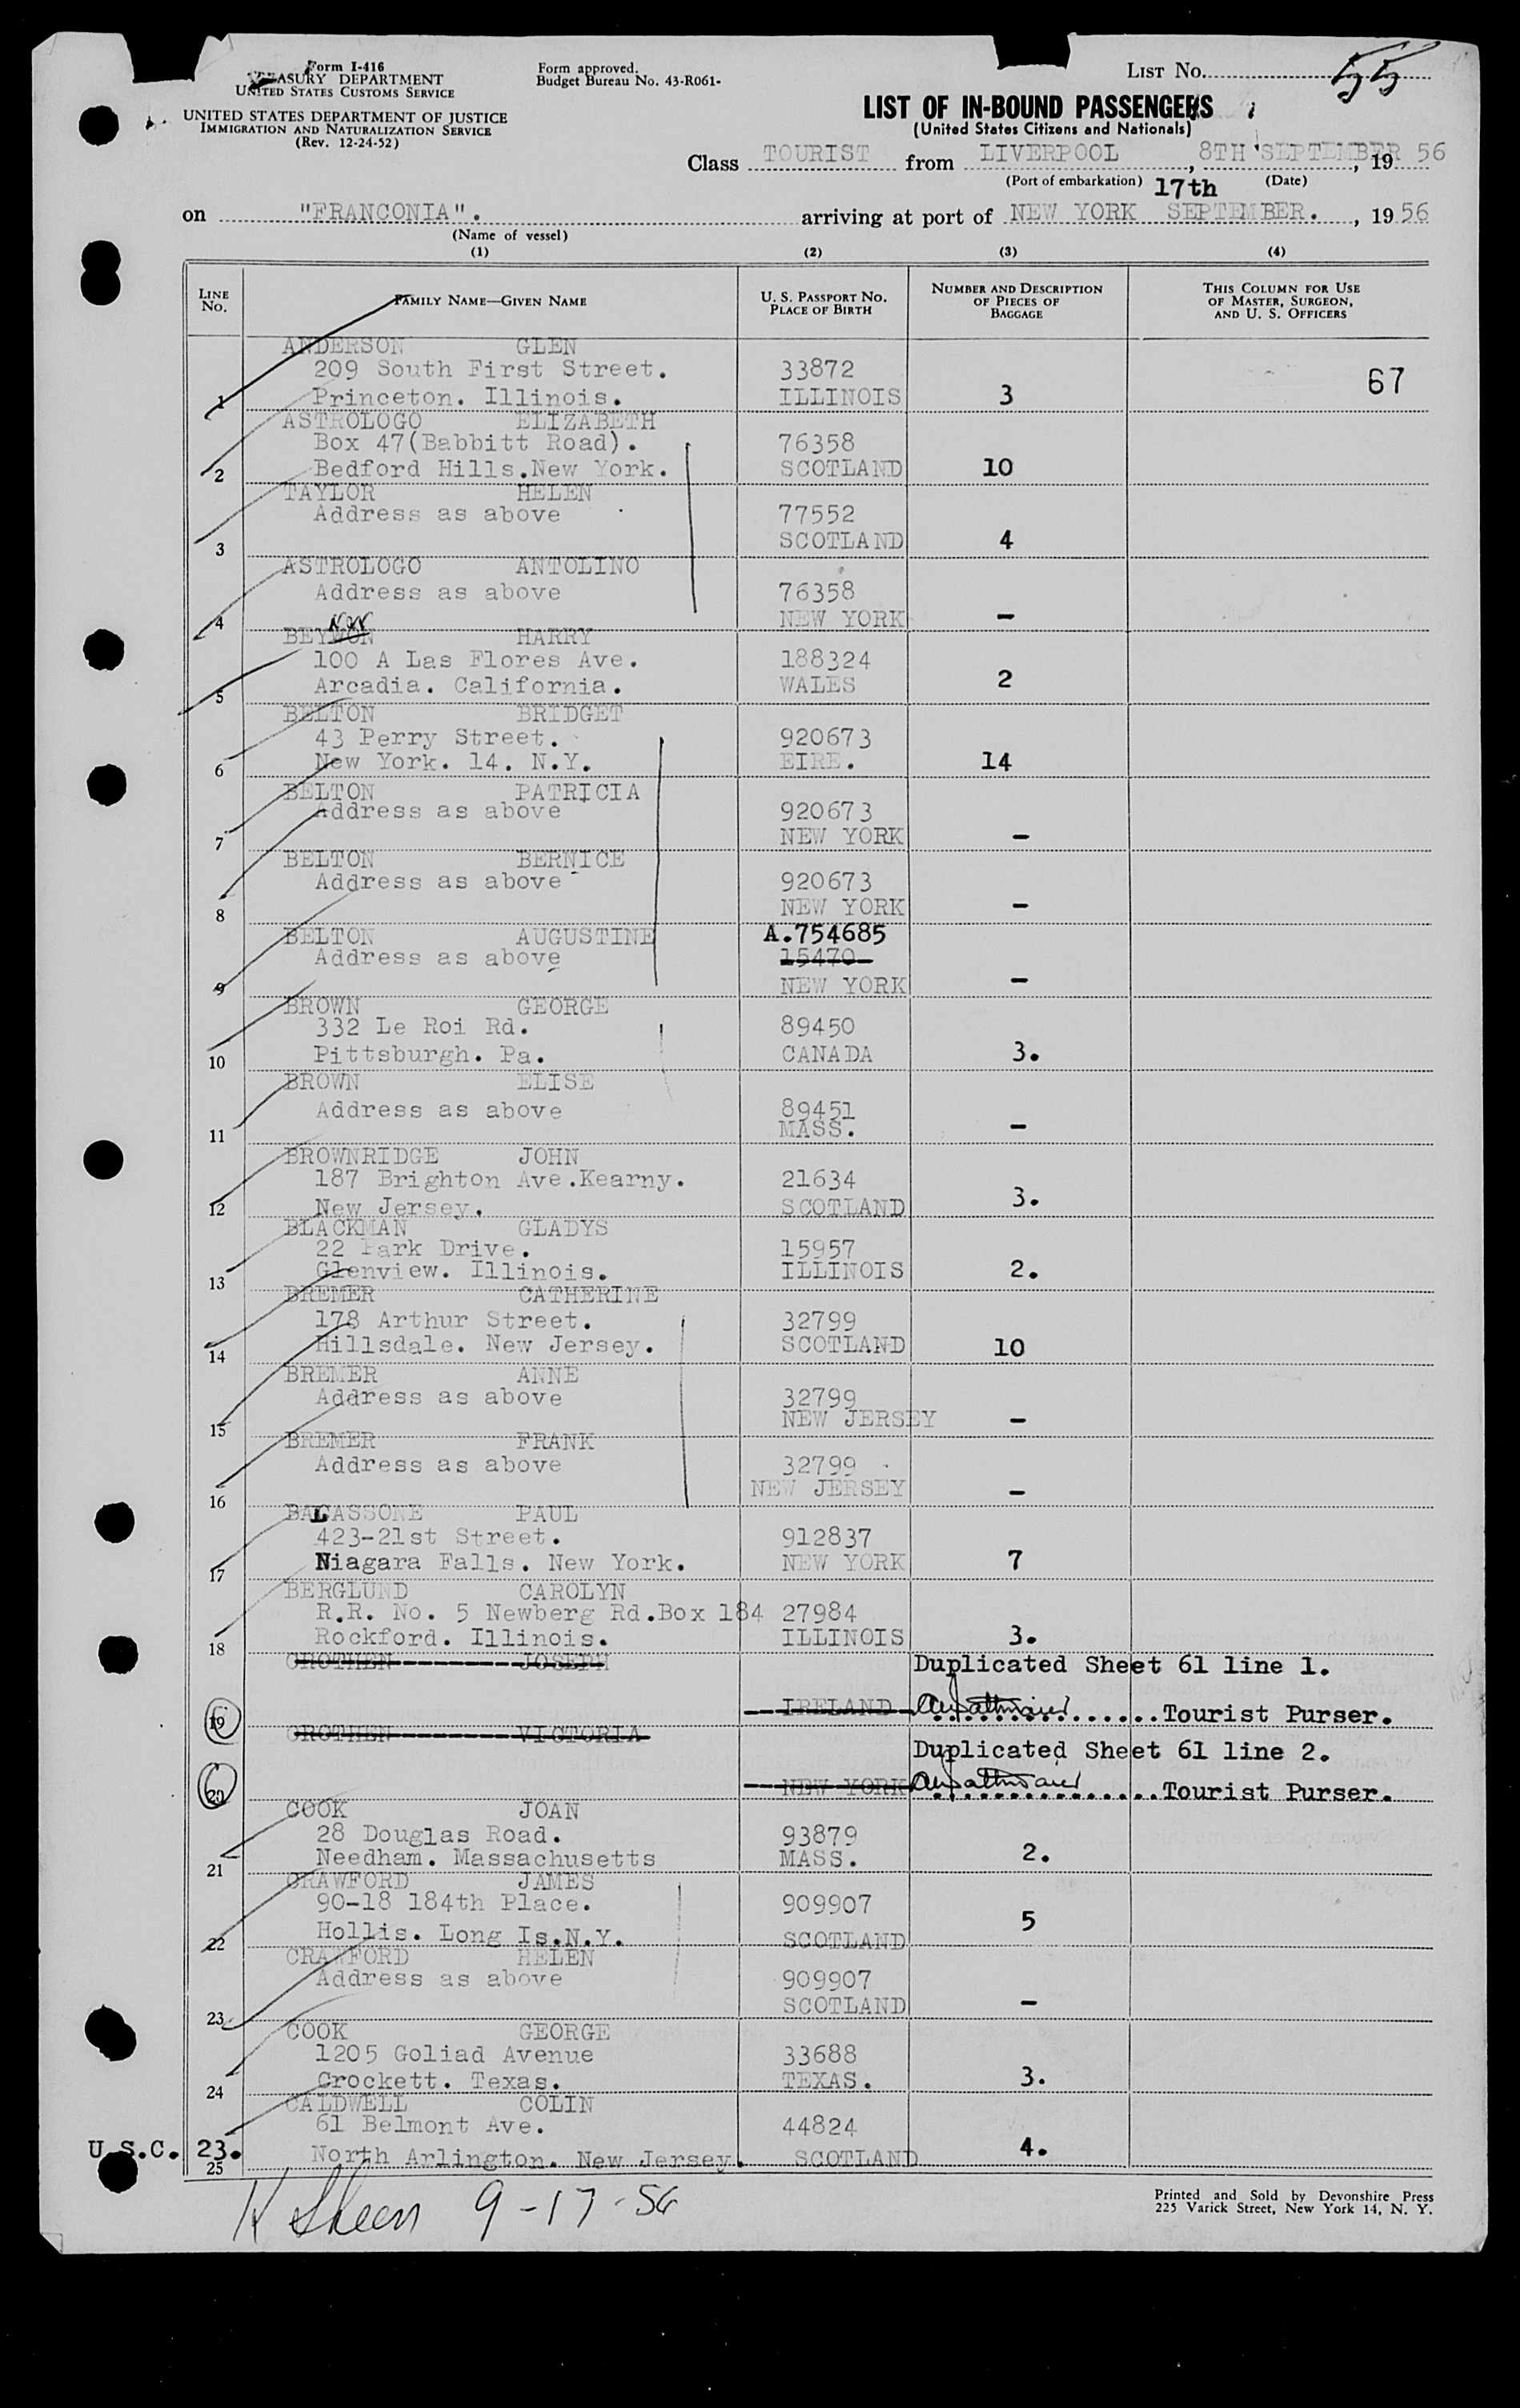 Form I-416
TREASURY DEPARTMENT
UNITED STATES CUSTOMS SERVICE
UNITED STATES DEPARTMENT OF JUSTICE
IMMIGRATION AND NATURALIZATION SERVICE
(Rev. 12-24-52)
Form approved.
Budget Bureau No. 43-R061-
LIST NO. 55
LIST OF IN-BOUND PASSENGERS
(United States Citizens and Nationals)
Class TOURIST from LIVERPOOL, 8TH SEPTEMBER, 19 56
(Port of embarkation) (Date)
on "FRANCONIA". arriving at port of NEW YORK 17th SEPTEMBER., 19 56
(Name of vessel)
(1) (2) (3) (4)
LINE NO. FAMILY NAME—GIVEN NAME U. S. PASSPORT NO. PLACE OF BIRTH NUMBER AND DESCRIPTION OF PIECES OF BAGGAGE THIS COLUMN FOR USE OF MASTER, SURGEON, AND U. S. OFFICERS
ANDERSON GLEN
209 South First Street. 33872 67
1 Princeton. Illinois. ILLINOIS 3
ASTROLOGO ELIZABETH
Box 47(Babbitt Road). 76358
2 Bedford Hills.New York. SCOTLAND 10
TAYLOR HELEN
Address as above 77552
3 SCOTLAND 4
ASTROLOGO ANTOLINO
Address as above 76358
4 NEW YORK -
BEYMON HARRY
100 A Las Flores Ave. 188324
5 Arcadia. California. WALES 2
BELTON BRIDGET
43 Perry Street. 920673
6 New York. 14. N.Y. EIRE. 14
BELTON PATRICIA
Address as above 920673
7 NEW YORK -
BELTON BERNICE
Address as above 920673
8 NEW YORK -
BELTON AUGUSTINE A.754685
Address as above 15470
9 NEW YORK -
BROWN GEORGE
332 Le Roi Rd. 89450
10 Pittsburgh. Pa. CANADA 3.
BROWN ELISE
Address as above 89451
11 MASS. -
BROWNRIDGE JOHN
187 Brighton Ave.Kearny. 21634
12 New Jersey. SCOTLAND 3.
BLACKMAN GLADYS
22 Park Drive. 15957
13 Glenview. Illinois. ILLINOIS 2.
BREMER CATHERINE
178 Arthur Street. 32799
14 Hillsdale. New Jersey. SCOTLAND 10
BREMER ANNE
Address as above 32799
15 NEW JERSEY -
BREMER FRANK
Address as above 32799
16 NEW JERSEY -
BALASSONE PAUL
423-21st Street. 912837
17 Niagara Falls. New York. NEW YORK 7
BERGLUND CAROLYN
R.R. No. 5 Newberg Rd.Box 184 27984
18 Rockford. Illinois. ILLINOIS 3.
CROTHEN JOSEPH Duplicated Sheet 61 line 1.
19 IRELAND Tourist Purser.
CROTHEN VICTORIA
Duplicated Sheet 61 line 2.
20 NEW YORK Tourist Purser.
COOK JOAN
28 Douglas Road. 93879
21 Needham. Massachusetts MASS. 2.
CRAWFORD JAMES
90-18 184th Place. 909907
22 Hollis. Long Is.N.Y. SCOTLAND 5
CRAWFORD HELEN
Address as above 909907
23 SCOTLAND -
COOK GEORGE
1205 Goliad Avenue 33688
24 Crockett. Texas. TEXAS. 3.
CALDWELL COLIN
61 Belmont Ave. 44824
U.S.C. 23. North Arlington. New Jersey. SCOTLAND 4.
25
9-17-56
Printed and Sold by Devonshire Press
225 Varick Street, New York 14, N. Y.